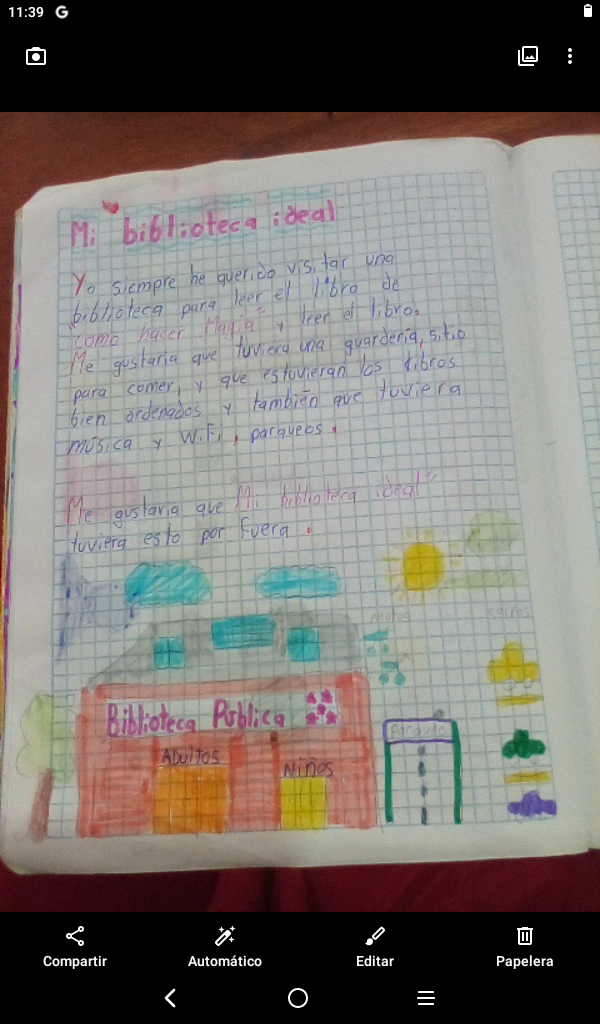 11:39 G
Mi biblioteca ideal
Yo siempre he querido visitar una
biblioteca para leer el libro de
"como hacer Magia" y leer el libro.
Me gustaria que tuviera una guardería, sitio
para comer, y que estuvieran los libros
bien ordenados y también que tuviera
música y Wi.Fi, parqueos.
Me gustaria que "Mi biblioteca ideal"
tuviera esto por fuera.
motos
carros
Biblioteca Publica
Parqueo
Adultos
Niños
Compartir
Automático
Editar
Papelera